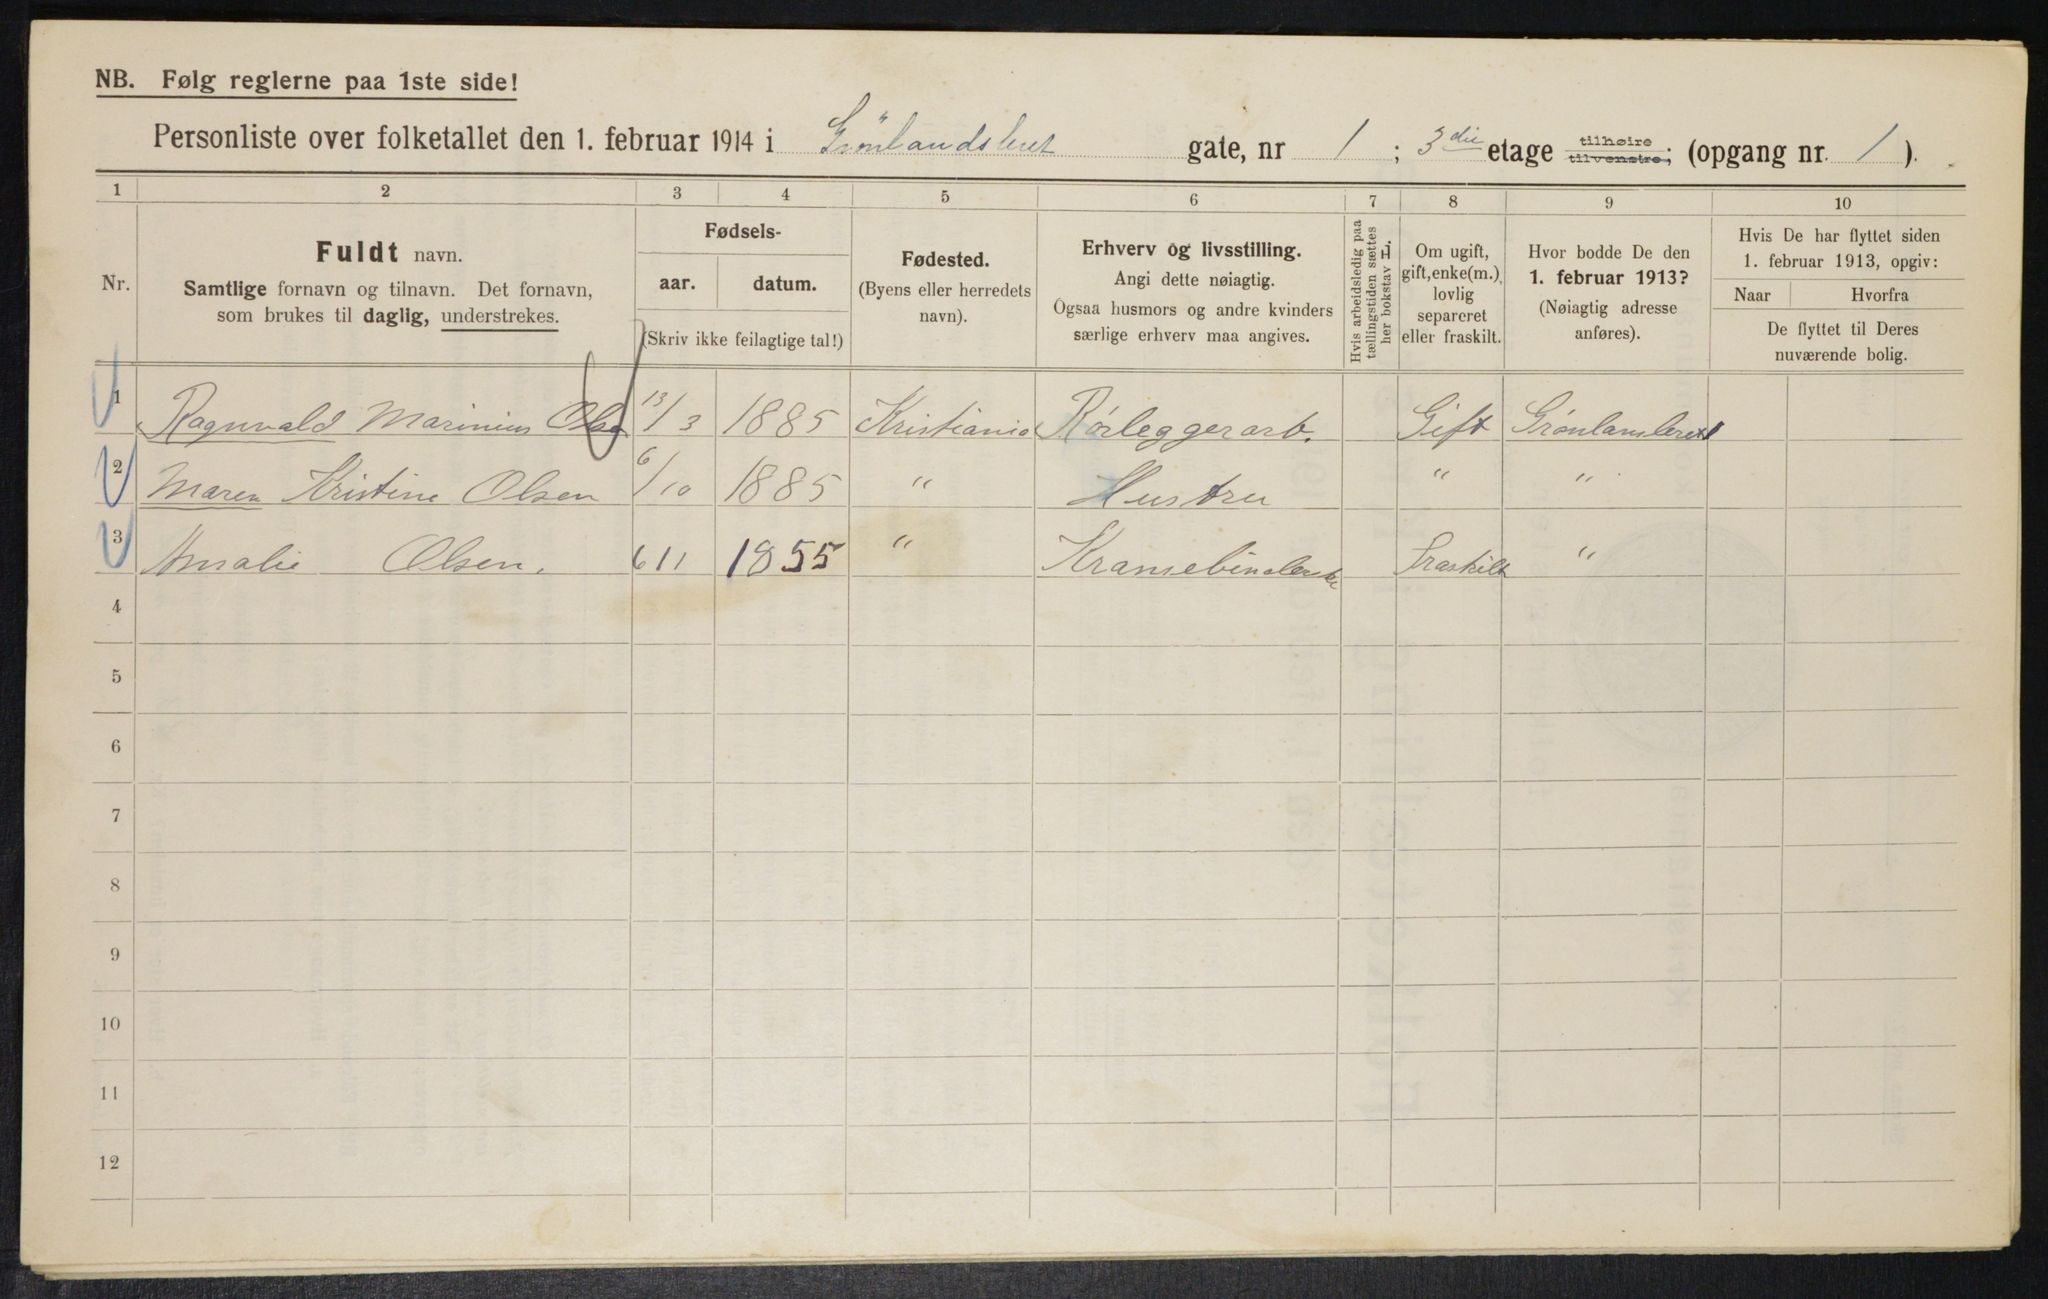 NB. Følg reglerne paa 1ste side!
Personliste over folketallet den 1. februar 1914 i Grønlandsleret gate, nr 1 ; 3die etage tilhøire tilvenstre; (opgang nr. 1 ).
1 2 3 4 5 6 7 8 9 10
Nr.
Fuldt navn.
Samtlige fornavn og tilnavn. Det fornavn,
som brukes til daglig, understrekes.
Fødsels-
aar. datum.
(Skriv ikke feilagtige tal!)
Fødested.
(Byens eller herredets
navn).
Erhverv og livsstilling.
Angi dette nøiagtig.
Ogsaa husmors og andre kvinders
særlige erhverv maa angives.
Hvis arbeidsledig paa
tællingstiden sættes
her bokstav L.
Om ugift,
gift, enke(m.),
lovlig
separeret
eller fraskilt.
Hvor bodde De den
1. februar 1913?
(Nøiagtig adresse
anføres).
Hvis De har flyttet siden
1. februar 1913, opgiv:
Naar Hvorfra
De flyttet til Deres
nuværende bolig.
1 Ragnvald Marinius Olsen 13/3 1885 Kristiania Rørleggerarb. Gift Grønlansleret 1
2 Maren Kristine Olsen 6/10 1885 " Hustru " "
3 Amalie Olsen. 6 11 1855 " Kransebinderske Fraskilt "
4
5
6
7
8
9
10
11
12